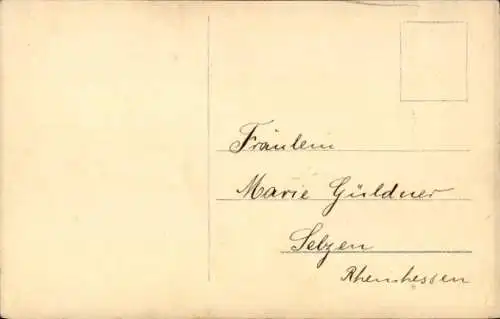 Fräulein
Marie Güldner
Selzen
Rheinhessen